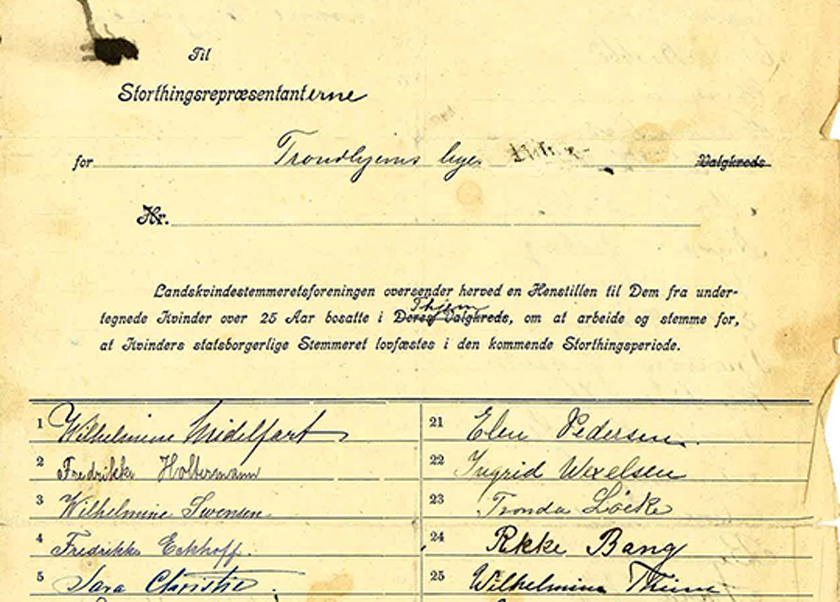 Til
Storthingsrepræsentanterne
for Trondhjems bye Valgkreds
Hr.
Landskvindestemmeretsforeningen oversender herved en Henstillen til Dem fra under-
tegnede Kvinder over 25 Aar bosatte i Deres Valgkreds, Thjem om at arbeide og stemme for,
at Kvinders statsborgerlige Stemmeret lovfæstes i den kommende Storthingsperiode.
1 Wilhelmine Midelfart
2 Fredrikke Holtermann
3 Wilhelmine Svensen
4 Fredrikke Eckhoff.
5 Sara Christie
21 Elen Pedersen.
22 Ingrid Wexelsen
23 Tronda Löcke
24 Rikke Bang
25 Wilhelmine Thime